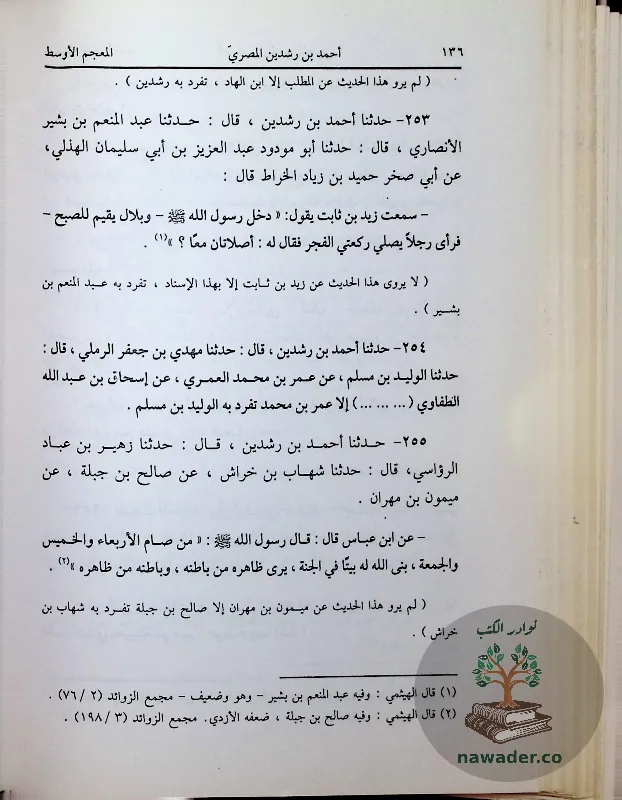 ١٣٦ أحمد بن رشدين المصريّ المعجم الأوسط
( لم يرو هذا الحديث عن المطلب إلا ابن الهاد ، تفرد به رشدين ) .
٢٥٣- حدثنا أحمد بن رشدين ، قال : حـدثنا عبد المنعم بن بشير
الأنصاري ، قال : حدثنا أبو مودود عبد العزيز بن أبي سليمان الهذلي،
عن أبي صخر حميد بن زياد الخراط قال :
– سمعت زيد بن ثابت يقول: « دخل رسول الله ﷺ – وبلال يقيم للصبح –
فرأى رجلاً يصلي ركعتي الفجر فقال له : أصلاتان معًا ؟ »(١) .
( لا يروى هذا الحديث عن زيد بن ثـابت إلا بهذا الإسناد ، تفرد به عـبد المنعم بن
بشـير ) .
٢٥٤- حدثنا أحمد بن رشدين ، قال : حدثنا مهدي بن جعفر الرملي ، قال :
حدثنا الوليـد بن مسلم ، عن عمر بن محمد العمـري ، عن إسحاق بن عبد الله
الطفاوي ( ... ... ... ) إلا عمر بن محمد تفرد به الوليد بن مسلم .
٢٥٥- حـدثنا أحمـد بن رشدين ، قـال : حدثنا زهيـر بن عباد
الرؤاسي، قال : حدثنا شهـاب بن خراش ، عن صالح بن جبلة ، عن
ميمون بن مهران .
– عن ابن عباس قال : قـال رسول الله ﷺ : « من صـام الأربعاء والخـميس
والجمعة ، بنى الله له بيتًا في الجنة ، يرى ظاهره من باطنه ، وباطنه من ظاهره »(٢) .
( لم يرو هذا الحديث عن مـيـمون بن مهران إلا صالح بن جبلة تفـرد به شهاب بن
خراش ) .
(١) قال الهيثمي : وفيه عبد المنعم بن بشير – وهو وضعيف – مجمع الزوائد (٢ / ٧٦) .
(٢) قال الهيثمي : وفيه صالح بن جبلة ، ضعفه الأزدي. مجمع الزوائد (٣ / ١٩٨) .
نوادر الكتب
nawader.co